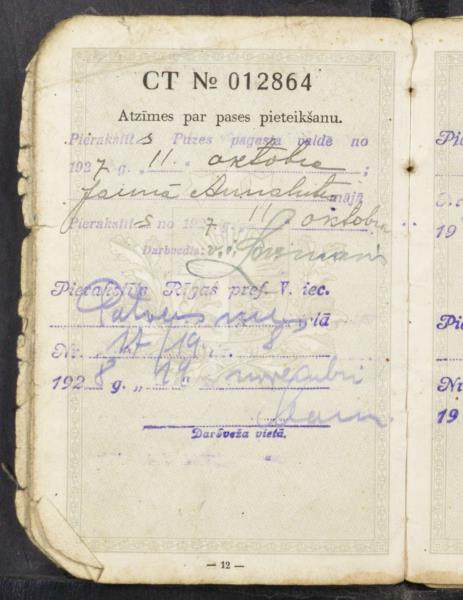 CT № 012864
Atzīmes par pases pieteikšanu.
Pierakstīts Puzes pagasta valdē no
1927 g. „ 11. " oktobra ;
Jaunā mājā
Pierakstīts no 1927 11 oktobra
Darbvedis: v. i.
Pierakstīta Rīgas pref. V. iec.
ielā
Nr. 17/19
1928 g. „ 19 " novembrī
Darbveža vietā.
— 12 —
Pi
19
Pi
Nr
19